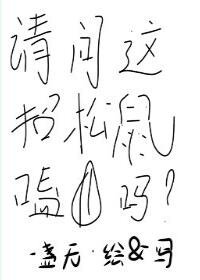 请问这
招松鼠
嗑吗?
·盏无·绘&马